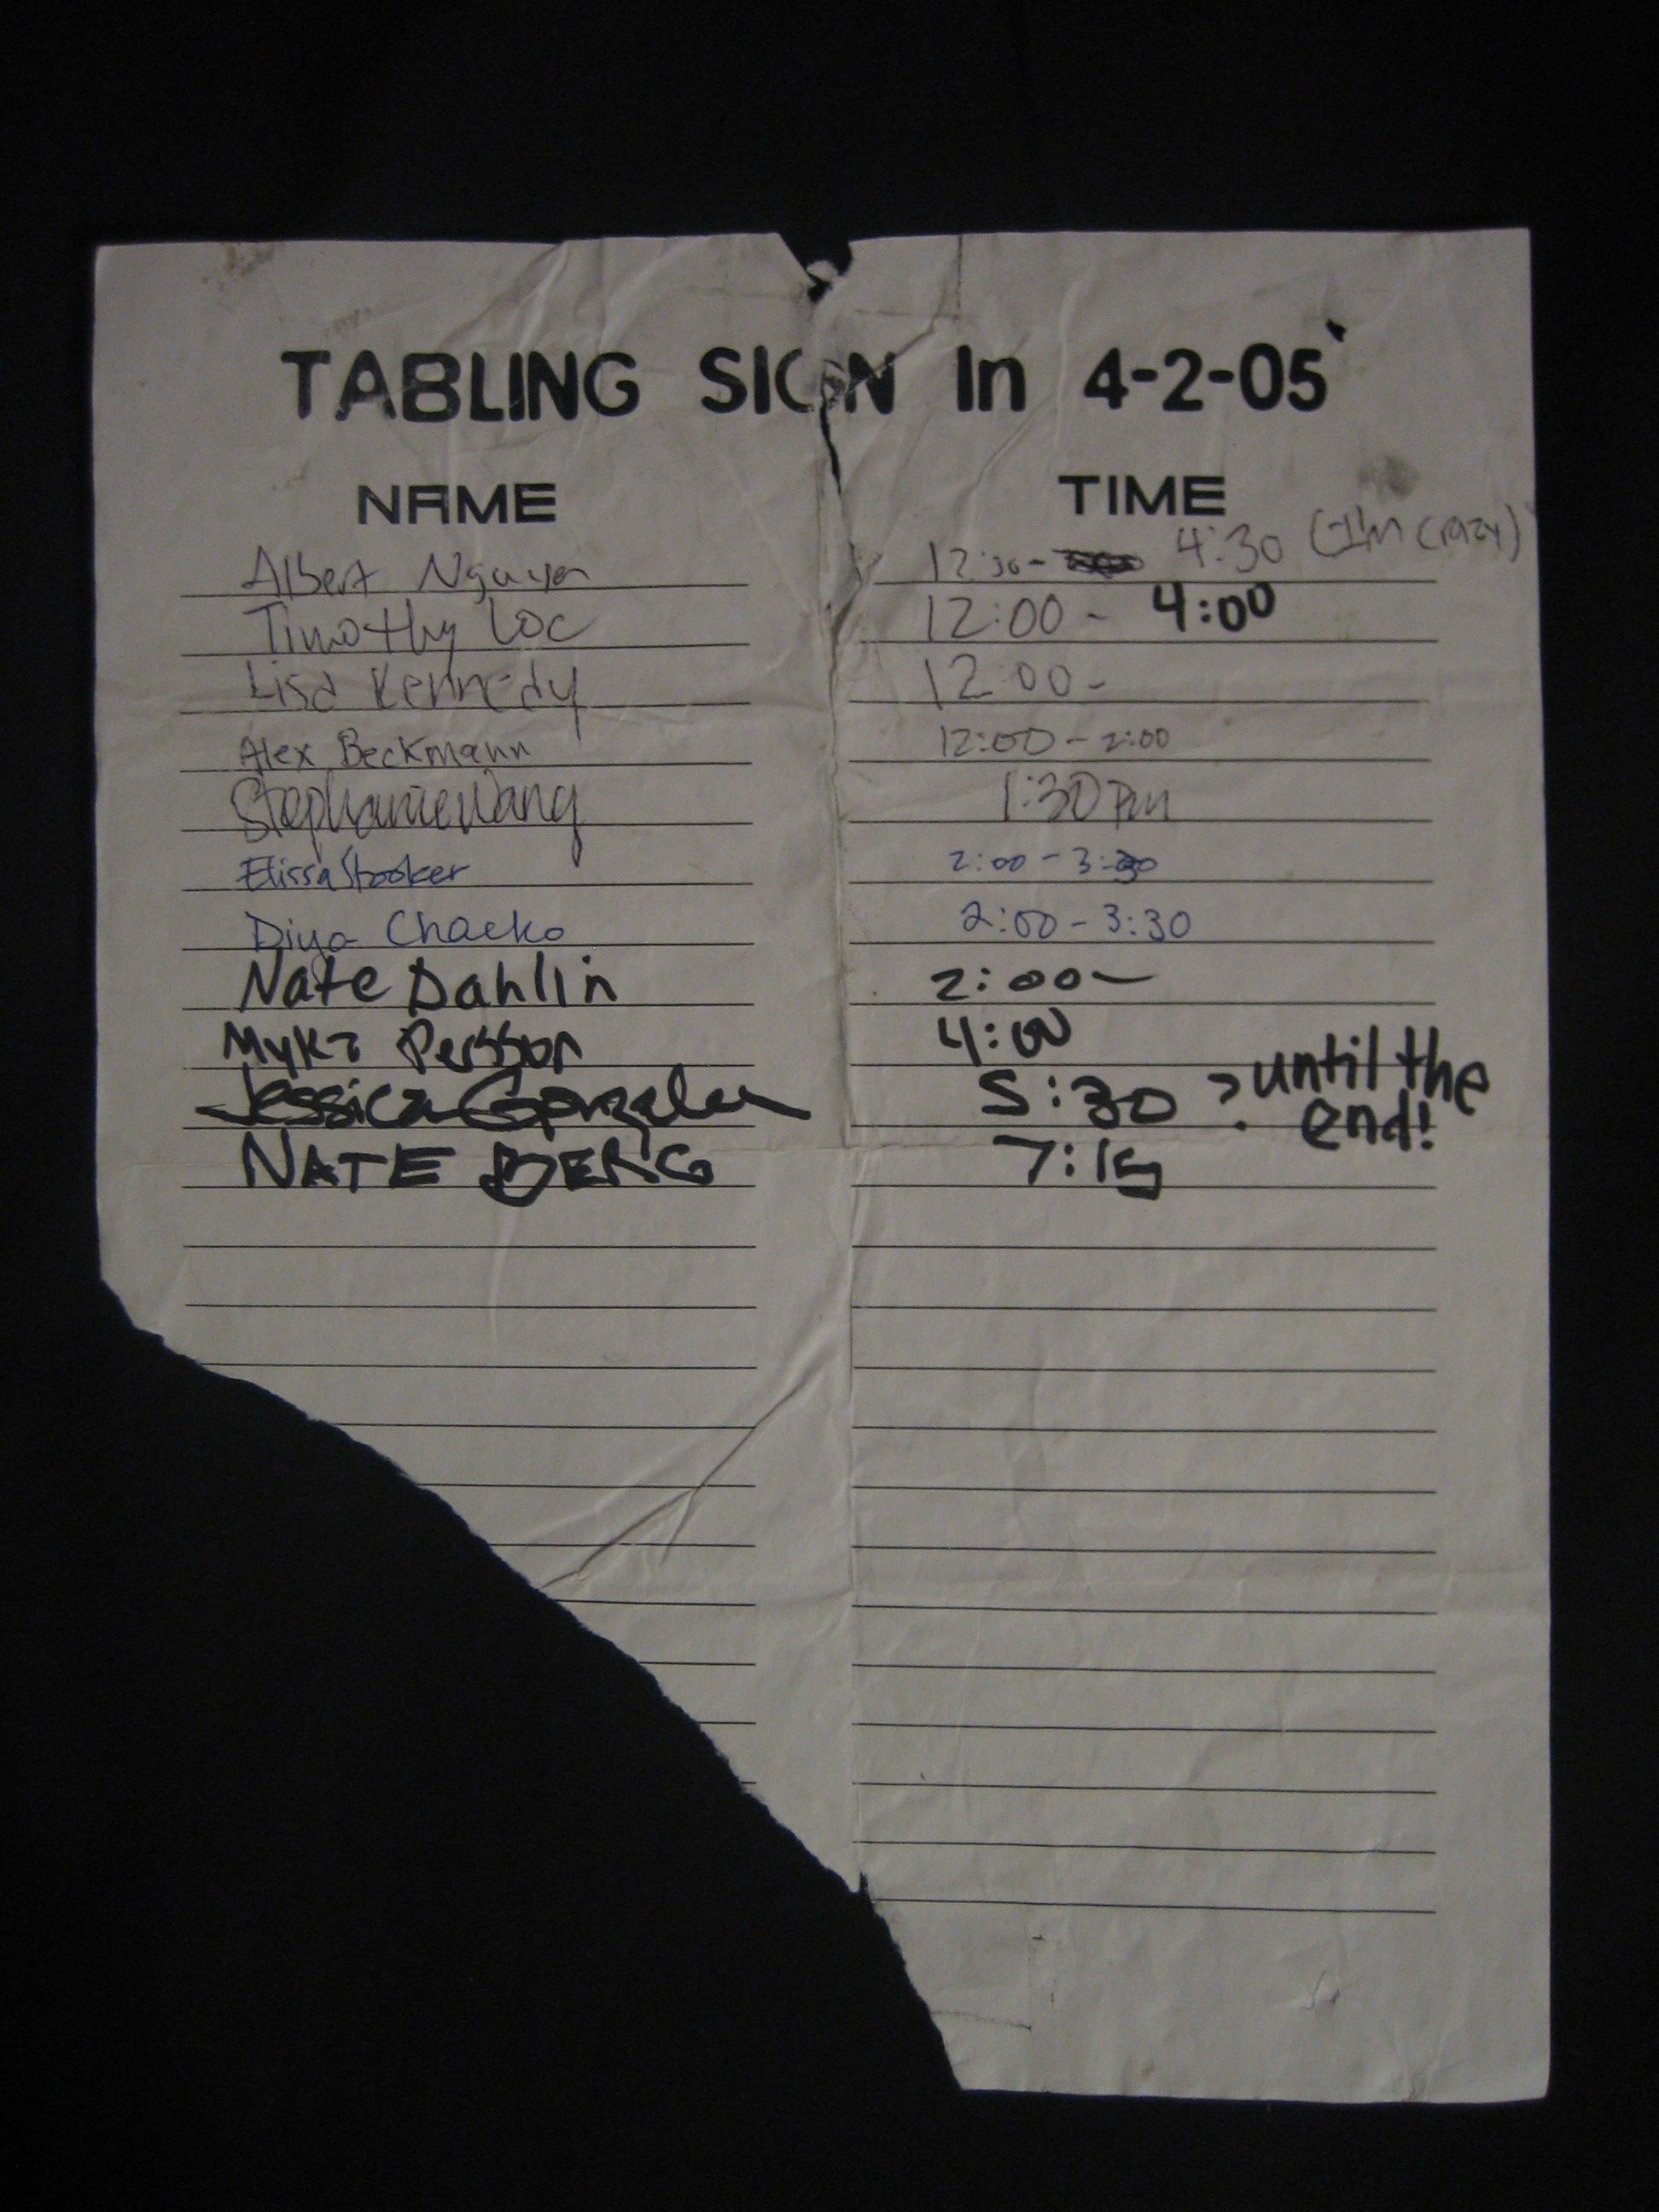 TABLING SIGN In 4-2-05
NAME TIME
Albert Nguyen 12:30- 4:30 (I'm crazy)
Timothy Loc 12:00- 4:00
Lisa Kennedy 12:00-
Alex Beckmann 12:00-2:00
Stephanie Wang 1:30pm
Elissa Stooker 2:00-3:30
Diya Chacko 2:00-3:30
Nate Dahlin 2:00-
Myka Persson 4:00
Jessica Gonzales 5:30 ? until the
end!
NATE BERG 7:15